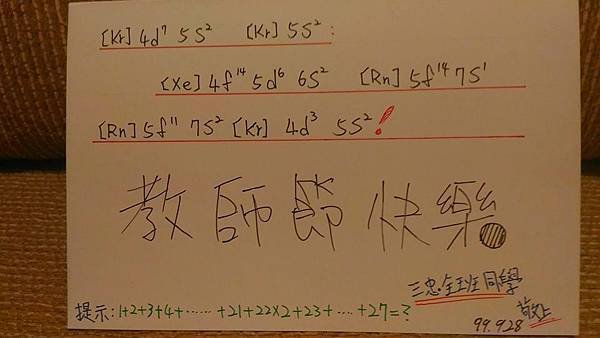 [Kr] 4d⁷ 5S² [Kr] 5S² :
[Xe] 4f¹⁴ 5d⁶ 6S² [Rn] 5f¹⁴ 7S¹
[Rn] 5f¹¹ 7S² [Kr] 4d³ 5S² !
教師節快樂。
三忠全班同學
敬上
99.928
提示:1+2+3+4+……+21+22×2+23+…+27=?